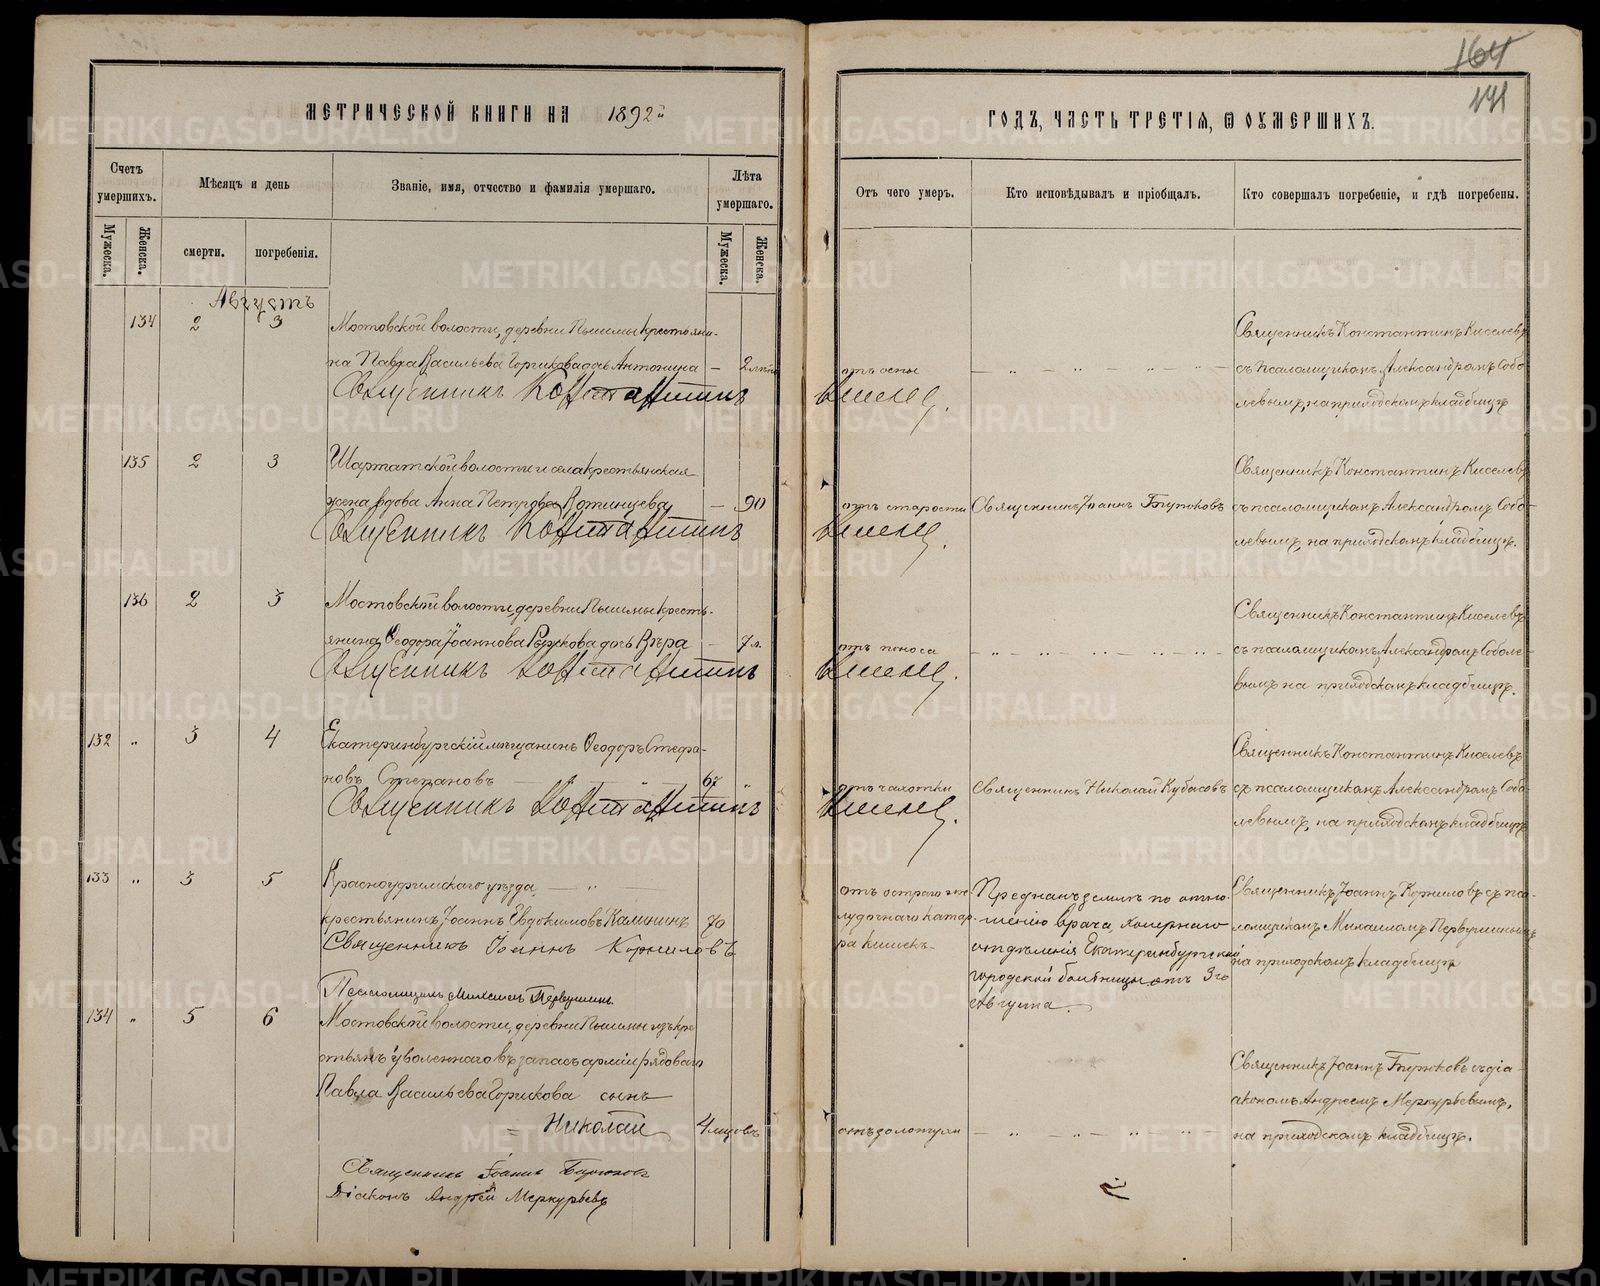 164
171
МЕТРИЧЕСКОЙ КНИГИ НА 1892й
ГОДЪ, ЧАСТЬ ТРЕТІЯ, Ѿ ОУМЕРШИХЪ.
Счетъ умершихъ.
Мѣсяцъ и день
Званіе, имя, отчество и фамилія умершаго.
Лѣта умершаго.
Отъ чего умеръ.
Кто исповѣдывалъ и пріобщалъ.
Кто совершалъ погребеніе, и гдѣ погребены.
Мужеска.
Женска.
смерти.
погребенія.
Мужеска.
Женска.
Августъ
134 2 3 Мостовской волости, деревни Пышмы крестьяни-
на Павла Васильева Горшкова дочь Антонина — 2 лѣтъ
отъ оспы
Священникъ Константинъ Киселевъ
съ псаломщикомъ Александромъ Собо-
левымъ, на приходскомъ кладбищѣ
Священникъ Константинъ Киселевъ.
135 2 3 Шарташской волости и села крестьянская
жена вдова Анна Петрова Вотинцева — 90
отъ старости
Священникъ Іоаннъ Бирюковъ
Священникъ Константинъ Киселевъ
съ псаломщикомъ Александромъ Собо-
левымъ, на приходскомъ кладбищѣ.
Священникъ Константинъ Киселевъ.
136 2 3 Мостовской волости, деревни Пышмы кресть-
янина Ѳеодора Іоаннова Рыжкова дочь Вѣра — 7 л.
отъ поноса
Священникъ Константинъ Киселевъ
съ псаломщикомъ Александромъ Соболе-
вымъ на приходскомъ кладбищѣ.
Священникъ Константинъ Киселевъ.
132 „ 3 4 Екатеринбургскій мѣщанинъ Ѳеодоръ Стефа-
новъ Степановъ 67 „
отъ чахотки
Священникъ Николай Кубасовъ
Священникъ Константинъ Киселевъ
съ псаломщикомъ Александромъ Собо-
левымъ, на приходскомъ кладбищѣ
Священникъ Константинъ Киселевъ.
133 „ 3 5 Красноуфимскаго уѣзда
крестьянинъ Іоаннъ Евдокимовъ Калининъ 70
отъ остраго же-
лудочнаго катар-
ра кишекъ
Преданъ землѣ по отно-
шенію врача, холернаго
отдѣленія Екатеринбургской
городской больницы отъ 3го
Августа.
Священникъ Іоаннъ Корниловъ съ пса-
ломщикомъ Михаиломъ Первушинымъ
на приходскомъ кладбищѣ
Священникъ Іоаннъ Корниловъ
Псаломщикъ Михаилъ Первушинъ.
134 „ 5 6 Мостовской волости, деревни Пышмы изъ кре-
стьянъ уволеннаго въ запасъ арміи рядового
Павла Васильева Горшкова сынъ
Николай 4 мѣсцовъ
отъ золотухи
Священникъ Іоаннъ Бирюковъ съ діа-
кономъ Андреемъ Меркурьевымъ,
на приходскомъ кладбищѣ.
Священникъ Іоаннъ Бирюковъ
Діаконъ Андрей Меркурьевъ
METRIKI.GASO-URAL.RU